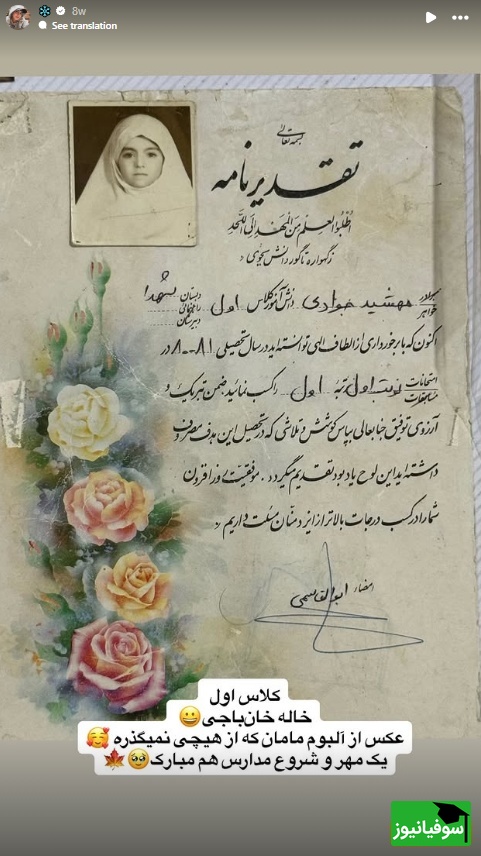 8w
See translation
بسمه تعالی
تقدیرنامه
اُطْلُبُوا العِلْمَ مِنَ المَهْدِ اِلَی اللَّحَدِ
ز گهواره تا گور دانش بجوی
برادر خواهر مهشید جوادی دانش آموز کلاس اول دبستان راهنمائی دبیرستان شهدا
اکنون که با برخورداری از الطاف الهی توانسته اید در سال تحصیلی ۸۱-۸۰ در
امتحانات مسابقات نوبت اول رتبه اول را کسب نمائید ضمن تبریک و
آرزوی توفیق جنابعالی بپاس کوشش و تلاشی که در تحصیل این هدف مصروف
داشته اید این لوح یادبود تقدیم میگردد. موفقیت روزافزون
شما را در کسب درجات بالاتر از ایزد منّان مسئلت داریم
امضاء ابوالقاسمی
کلاس اول
خاله خان‌باجی😀
عکس از آلبوم مامان که از هیچی نمیگذره 🥰
یک مهر و شروع مدارس هم مبارک🥹🍁
سوفیانیوز